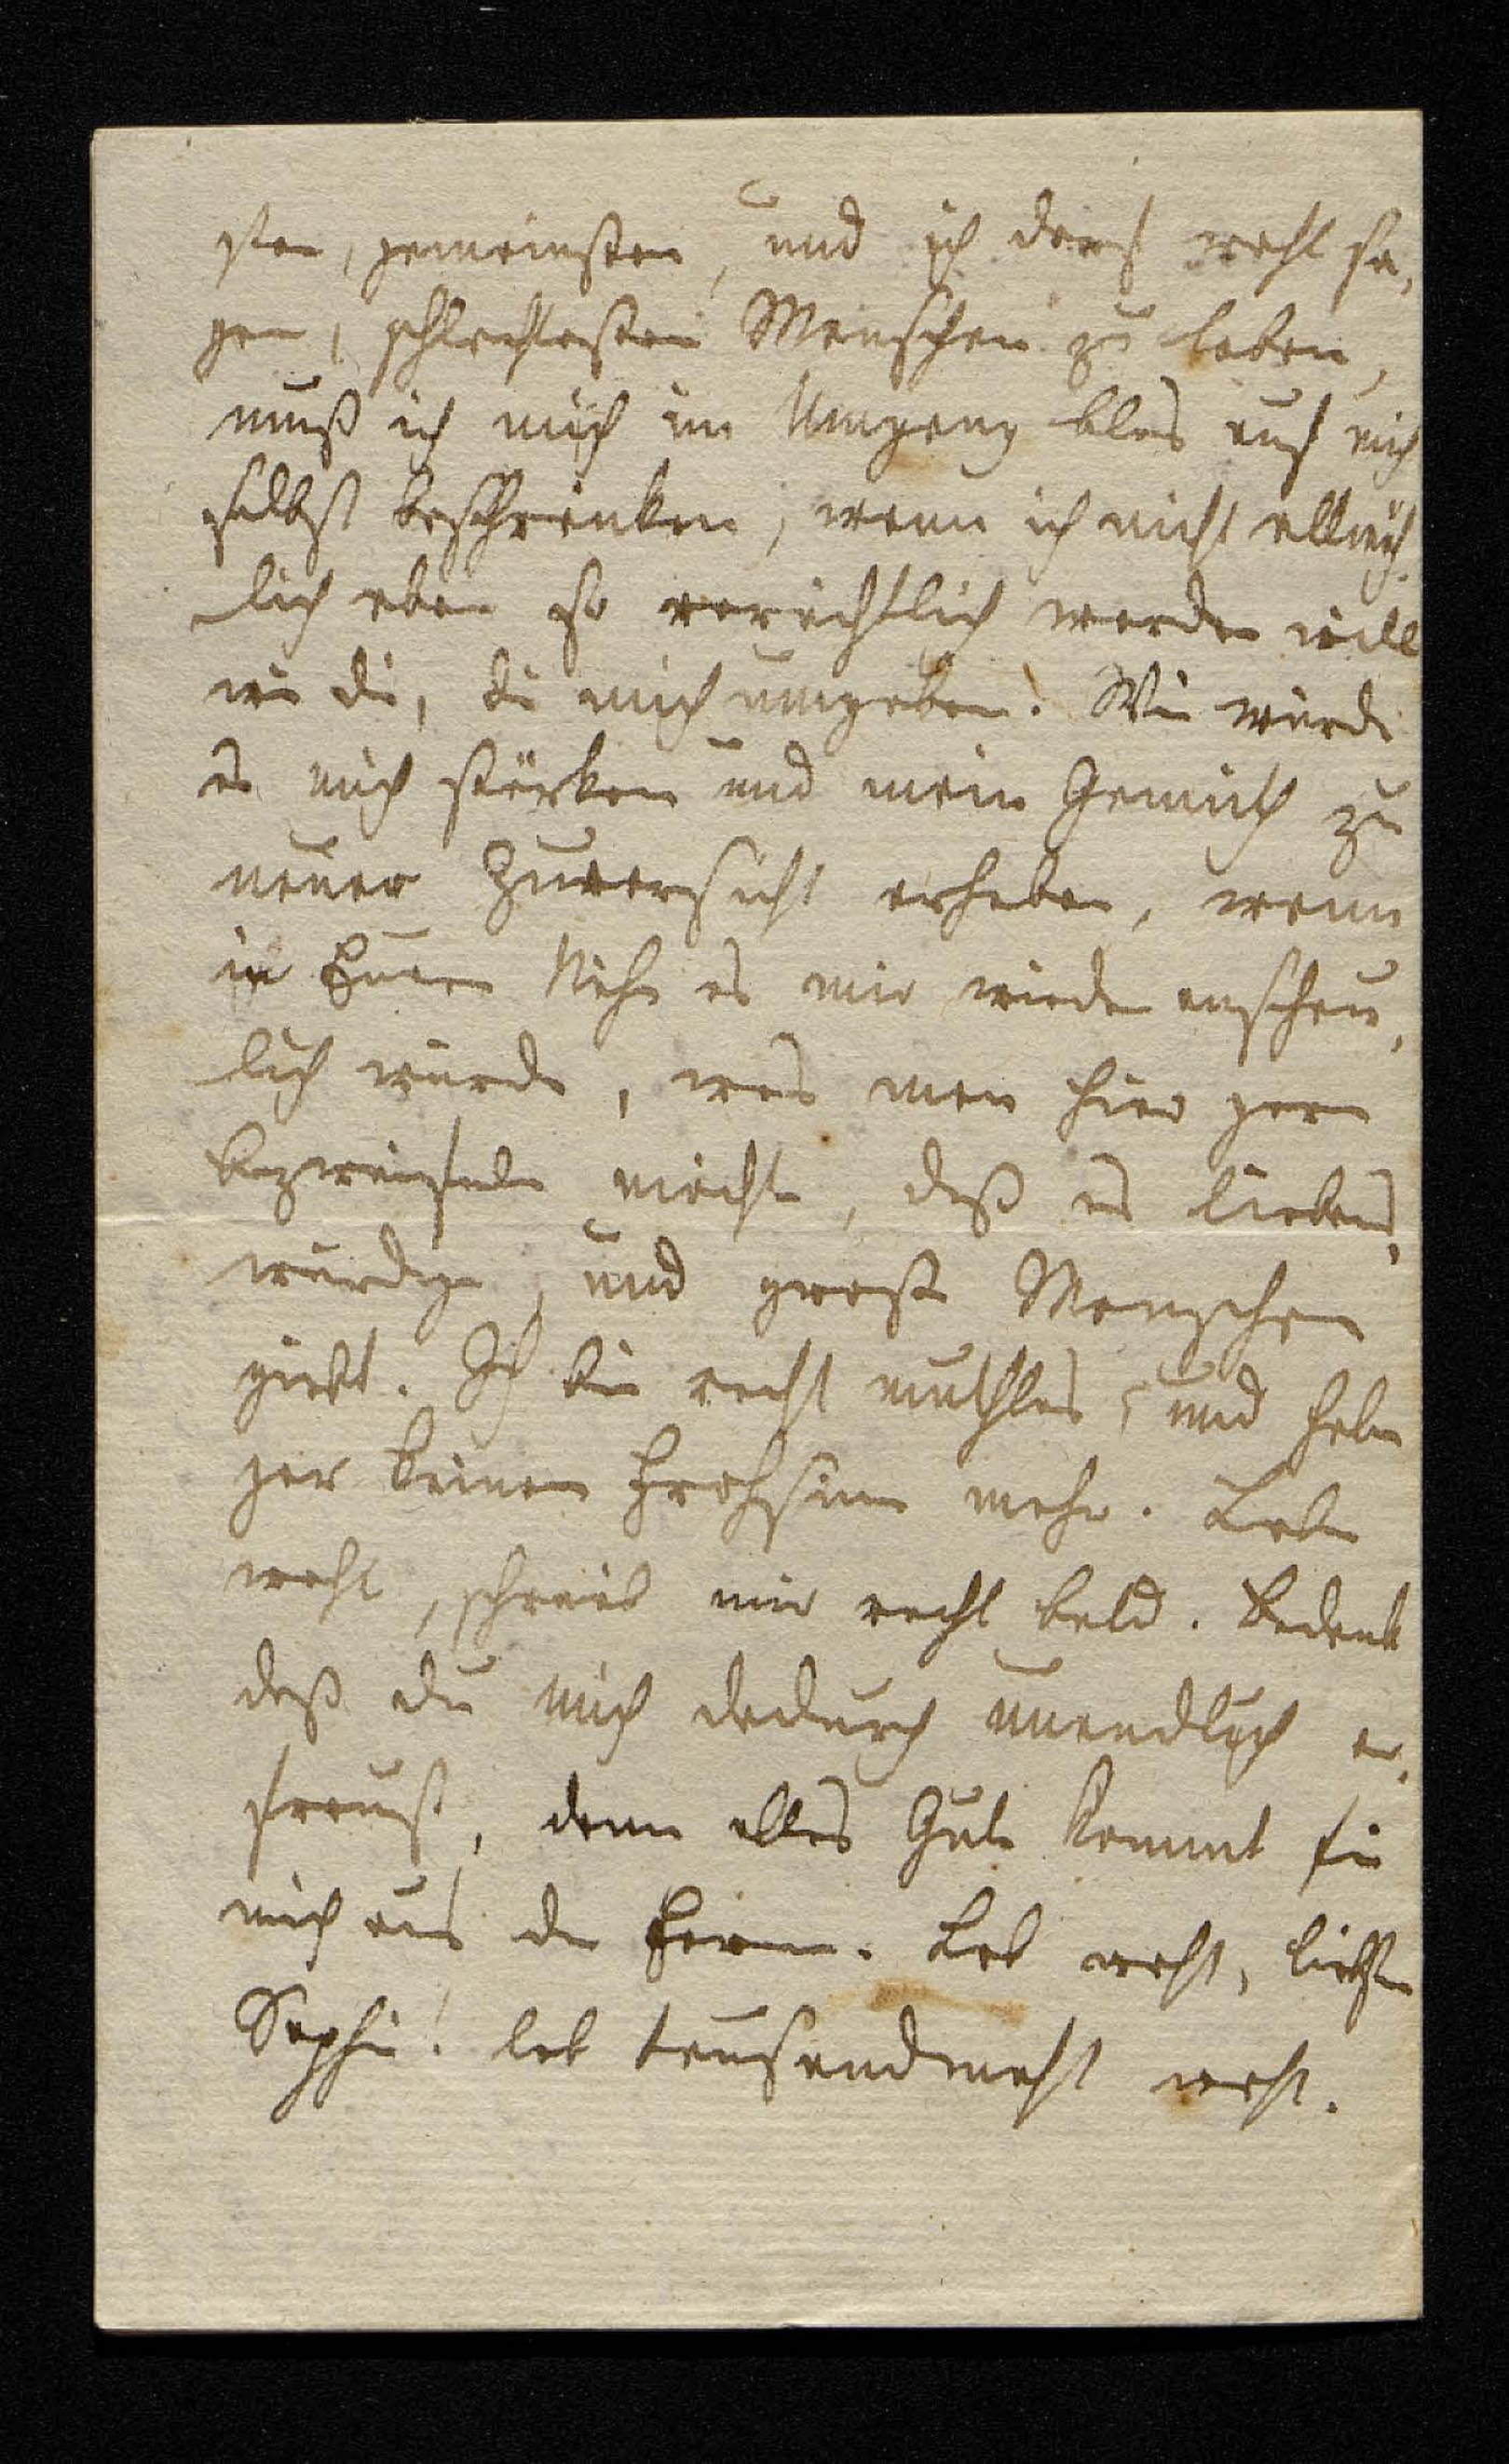 sten, gemeinsten, und ich darf wohl sa,
gen, schlechtesten Menschen zu leben,
muß ich mich im Umgang blos auf mich
selbst beschränken, wenn ich nicht allmäh,
lich eben so verächtlich werden will
wie die, die mich umgeben. Wie würde
es mich stärken und mein Gemüth zu
neuer Zuversicht erheben, wenn
in Eurer Nähe es mir wieder anschau,
lich würde, was man hier gern
bezweifeln möchte, daß es liebens,
würdige, und große Menschen
giebt. Ich bin recht muthlos, und habe
gar keinen Frohsinn mehr. Lebe
wohl, schreib mir recht bald. Bedenk
daß du mich dadurch unendlich er,
freust, denn alles Gute kommt für
mich aus der Ferne. Leb wohl, liebste
Sophie! leb tausendmahl wohl.